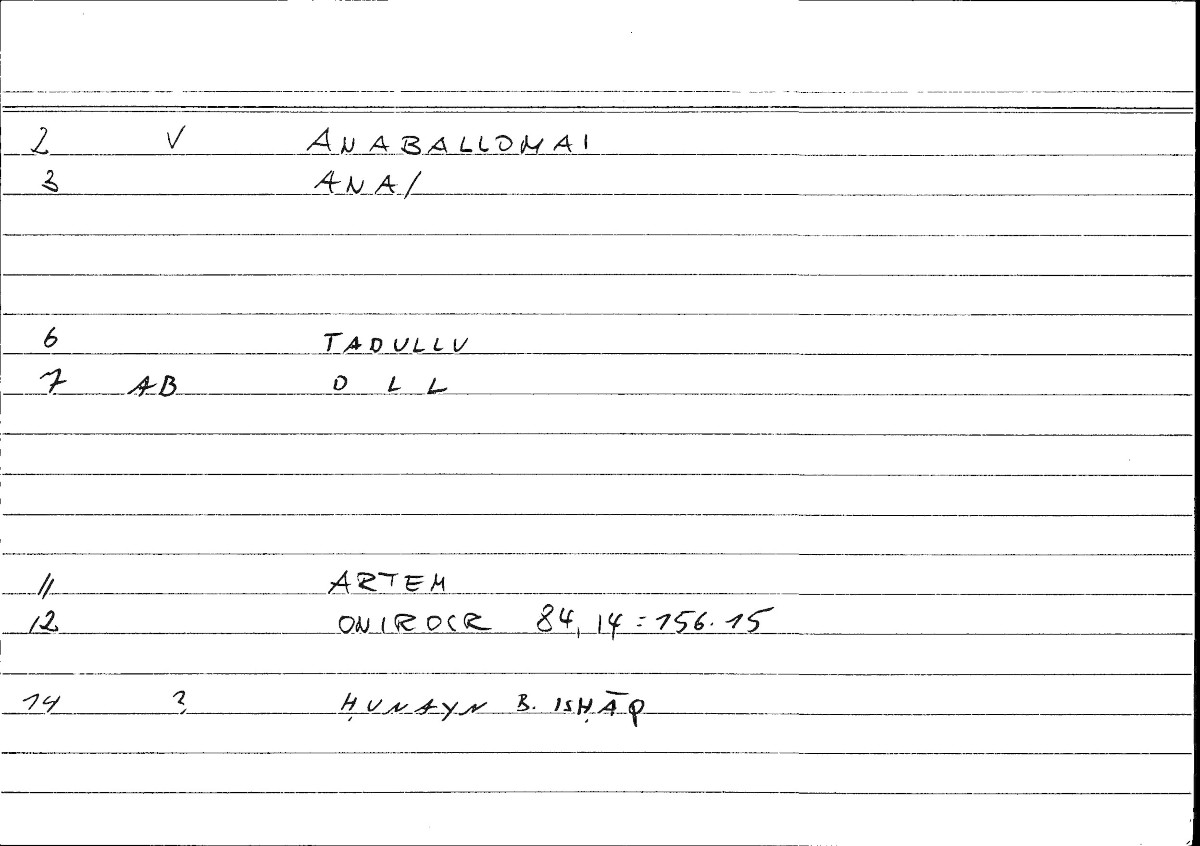 2 V ANABALLOMAI
3 ANA/
6 TADULLU
7 AB D L L
11 ARTEM
12 ONIROCR 84, 14 = 156.15
14 ? ḤUNAYN B. ISḤĀQ